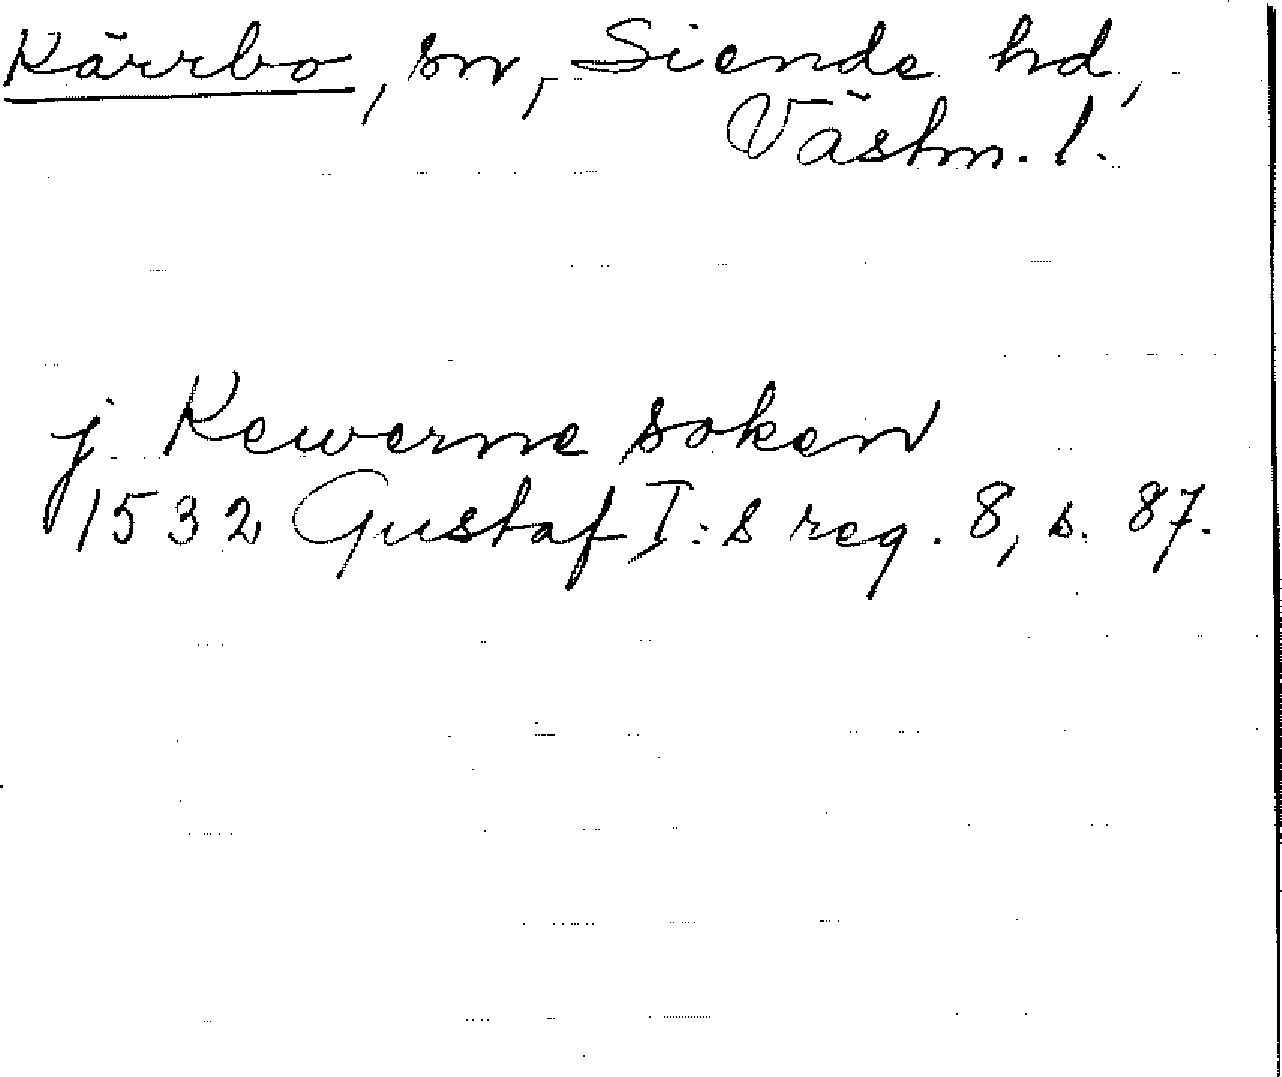 Kärrbo, sn, Siende hd,
Västm. l.
j Kewerne soken
1532 Gustaf I:s reg. 8, s. 87.